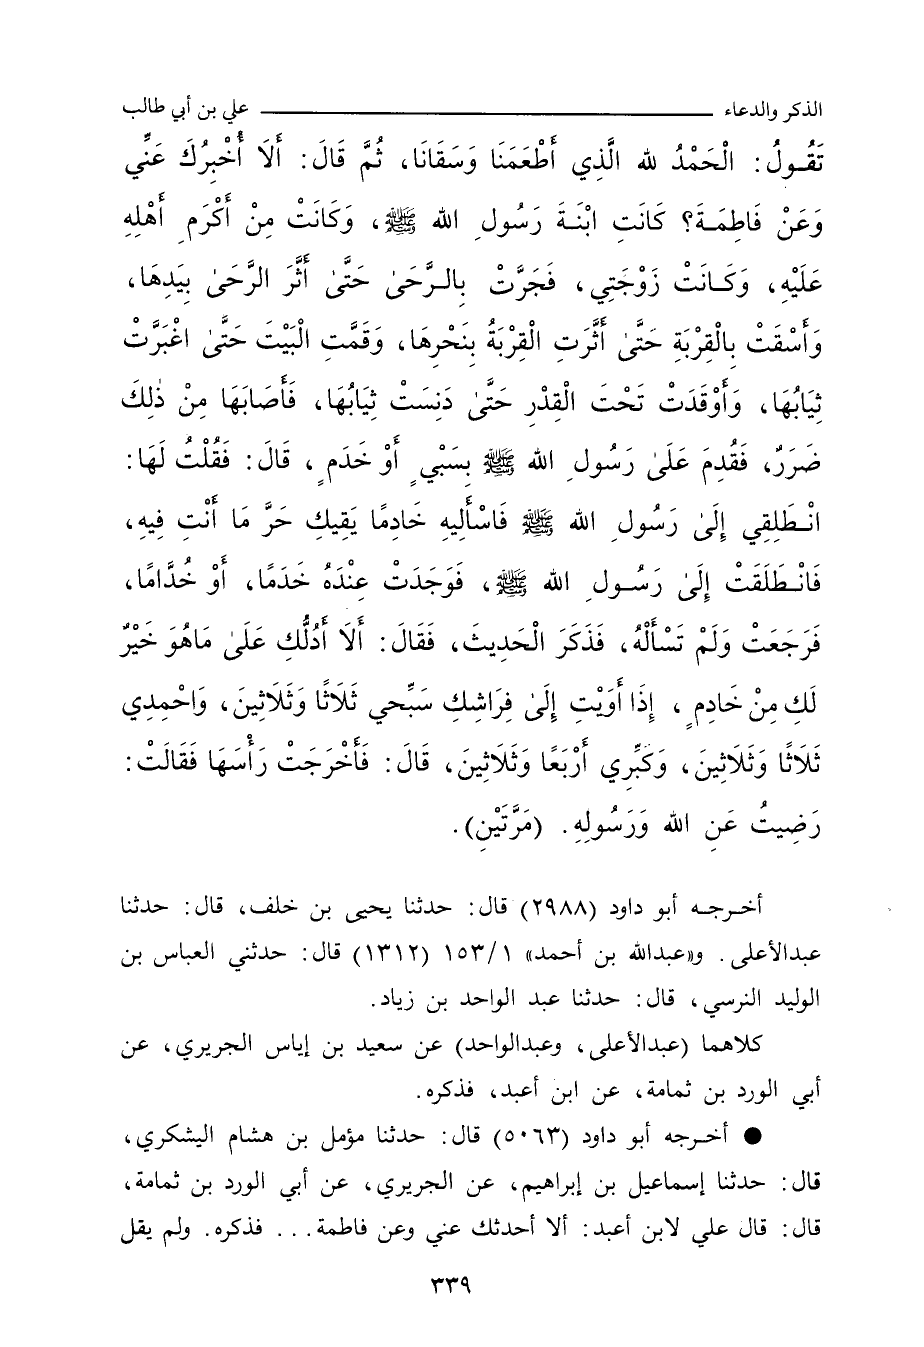 الذكر والدعاء ــــــــــــــــ علي بن أبي طالب
تَقُـولُ: الْحَمْدُ لله الَّذِي أَطْعَمَنَا وَسَقَانَا، ثُمَّ قَالَ: أَلَا أُخْبِرُكَ عَنِّي
وَعَنْ فَاطِمَـةَ؟ كَانَتِ ابْنَـةَ رَسُولِ الله ﷺ، وَكَانَتْ مِنْ أَكْرَمِ أَهْلِهِ
عَلَيْهِ، وَكَـانَتْ زَوْجَتِي، فَجَرَّتْ بِالـرَّحَىٰ حَتَّىٰ أَثَّرَ الرَّحَىٰ بِيَدِهَا،
وَأَسْقَتْ بِالْقِرْبَةِ حَتَّىٰ أَثَّرَتِ الْقِرْبَةُ بِنَحْرِهَا، وَقَمَّتِ الْبَيْتَ حَتَّىٰ اغْبَرَّتْ
ثِيَابُهَا، وَأَوْقَدَتْ تَحْتَ الْقِدْرِ حَتَّىٰ دَنِسَتْ ثِيَابُهَا، فَأَصَابَهَا مِنْ ذٰلِكَ
ضَرَرٌ، فَقُدِمَ عَلَىٰ رَسُولِ الله ﷺ بِسَبْيٍ أَوْ خَدَمٍ، قَالَ: فَقُلْتُ لَهَا:
انْـطَلِقِي إِلَىٰ رَسُولِ الله ﷺ فَاسْأَلِيهِ خَادِمًا يَقِيكِ حَرَّ مَا أَنْتِ فِيهِ،
فَانْـطَلَقَتْ إِلَىٰ رَسُـولِ الله ﷺ، فَوَجَدَتْ عِنْدَهُ خَدَمًا، أَوْ خُدَّامًا،
فَرَجَعَتْ وَلَمْ تَسْأَلْهُ، فَذَكَرَ الْحَدِيثَ، فَقَالَ: أَلَا أَدُلُّكِ عَلَىٰ مَاهُوَ خَيْرٌ
لَكِ مِنْ خَادِمٍ، إِذَا أَوَيْتِ إِلَىٰ فِرَاشِكِ سَبِّحِي ثَلَاثًا وَثَلَاثِينَ، وَاحْمِدِي
ثَلَاثًا وَثَلَاثِينَ، وَكَبِّرِي أَرْبَعًا وَثَلَاثِينَ، قَالَ: فَأَخْرَجَتْ رَأْسَهَا فَقَالَتْ:
رَضِيتُ عَنِ الله وَرَسُولِهِ. (مَرَّتَيْنِ).
أخـرجـه أبو داود (٢٩٨٨) قال: حدثنا يحيى بن خلف، قال: حدثنا
عبدالأعلى. و«عبدالله بن أحمد» ١/١٥٣ (١٣١٢) قال: حدثني العباس بن
الوليد النرسي، قال: حدثنا عبد الواحد بن زياد.
كلاهما (عبدالأعلى، وعبدالواحد) عن سعيد بن إياس الجريري، عن
أبي الورد بن ثمامة، عن ابن أعبد، فذكره.
● أخـرجه أبو داود (٥٠٦٣) قال: حدثنا مؤمل بن هشام اليشكري،
قال: حدثنا إسماعيل بن إبراهيم، عن الجريري، عن أبي الورد بن ثمامة،
قال: قال علي لابن أعبد: ألا أحدثك عني وعن فاطمة... فذكره. ولم يقل
٣٣٩